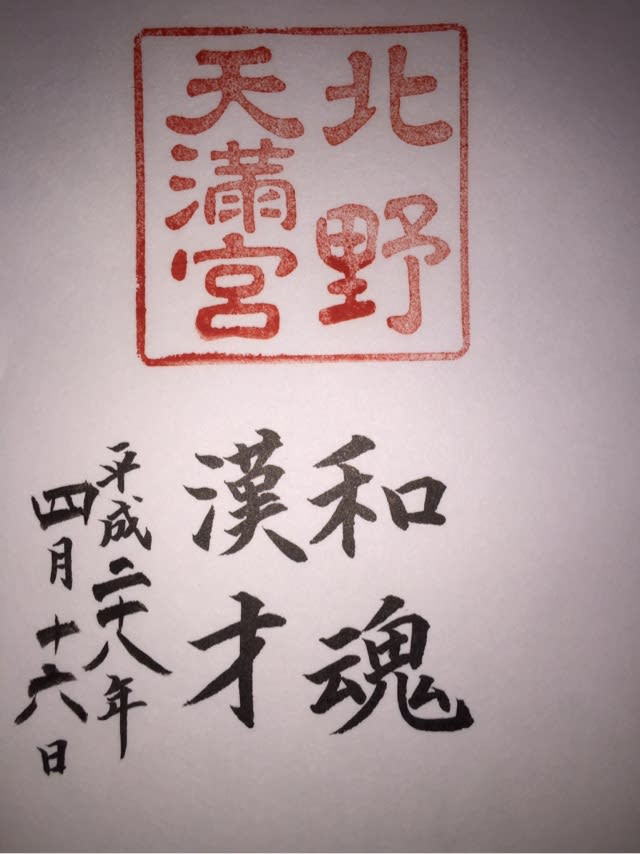 北野
天満宮
和魂
漢才
平成二十八年
四月十六日